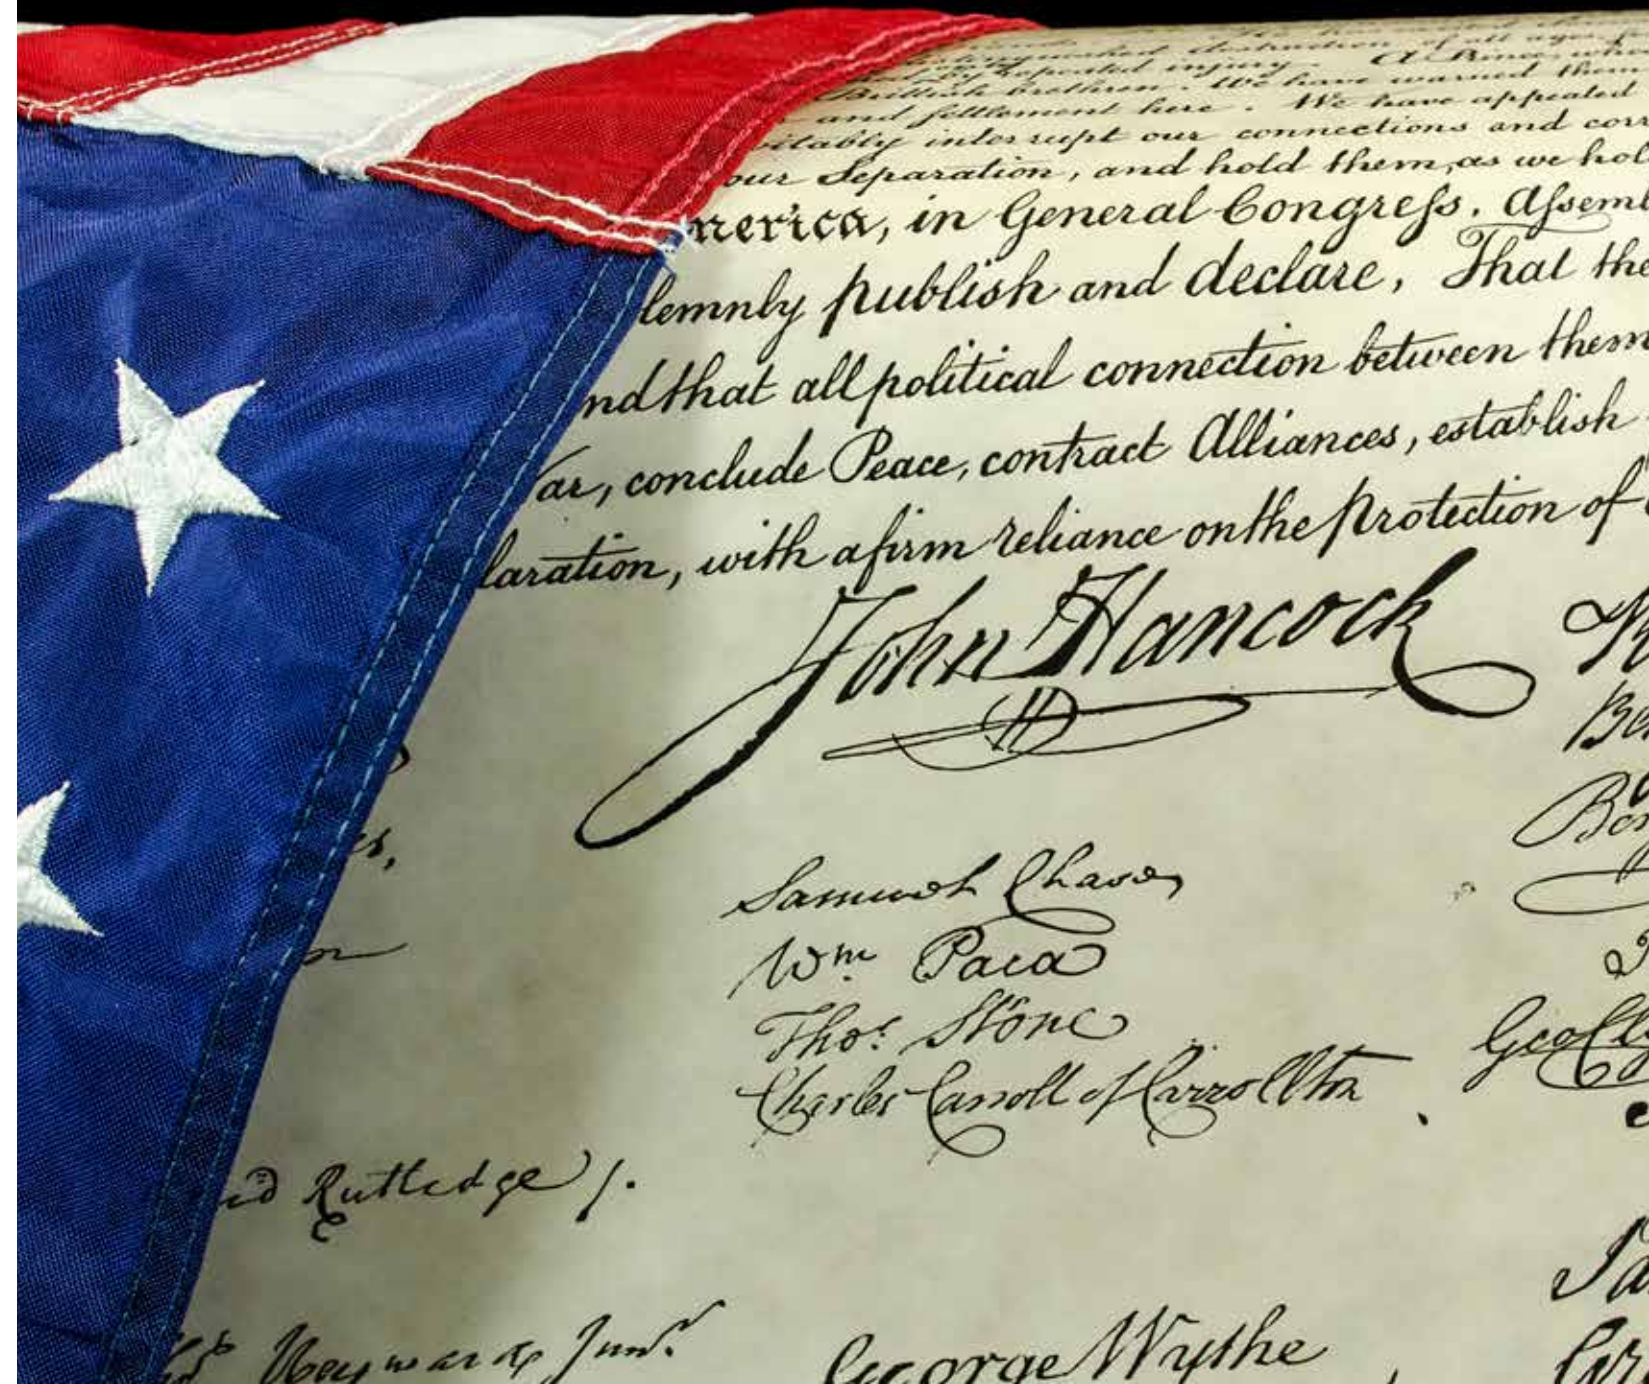 destruction of all ages, fo
by repeated injury. A Prince, whos
Brittish brethren. We have warned them
and settlement here. We have appealed
vitably interrupt our connections and corr
our Separation, and hold them, as we hol
merica, in General Congreſs, Aſsembl
lemnly publish and declare, That the
nd that all political connection between them
ar, conclude Peace, contract Alliances, establish
laration, with a firm reliance on the protection of
John Hancock
es,
Samuel Chase
Wm. Paca
Thos. Stone
Charles Carroll of Carrollton
Geo Cl
Rutledge /.
Heyward Junr.
George Wythe